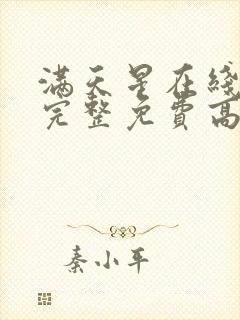 满天星在线
完整免費高
秦小平